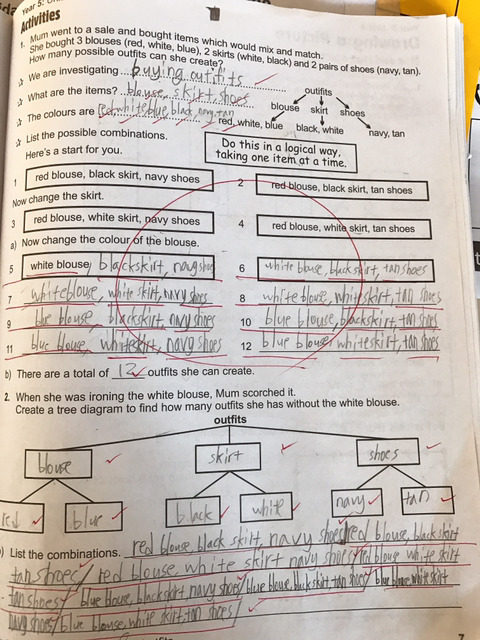 Year 5:
Activities
1. Mum went to a sale and bought items which would mix and match.
She bought 3 blouses (red, white, blue), 2 skirts (white, black) and 2 pairs of shoes (navy, tan).
How many possible outfits can she create?
☆ We are investigating...buying outfits
☆ What are the items? blouse, skirt, shoes
outfits
blouse skirt shoes
☆ The colours are red, white, blue, black, navy, tan
red, white, blue black, white navy, tan
☆ List the possible combinations.
Here's a start for you.
Do this in a logical way,
taking one item at a time.
1 red blouse, black skirt, navy shoes
2 red blouse, black skirt, tan shoes
Now change the skirt.
3 red blouse, white skirt, navy shoes
4 red blouse, white skirt, tan shoes
a) Now change the colour of the blouse.
5 white blouse, black skirt, navy shoes
6 white blouse, black skirt, tan shoes
7 white blouse, white skirt, navy shoes
8 white blouse, white skirt, tan shoes
9 blue blouse, black skirt, navy shoes
10 blue blouse, black skirt, tan shoes
11 blue blouse, white skirt, navy shoes
12 blue blouse, white skirt, tan shoes
b) There are a total of 12 outfits she can create.
2. When she was ironing the white blouse, Mum scorched it.
Create a tree diagram to find how many outfits she has without the white blouse.
outfits
blouse skirt shoes
red blue black white navy tan
) List the combinations. red blouse, black skirt, navy shoes/red blouse, black skirt
tan shoes/ red blouse, white skirt navy shoes/red blouse white skirt
tan shoes/ blue blouse, black skirt, navy shoes/blue blouse, black skirt, tan shoes/ blue blouse white skirt
navy shoes/ blue blouse, white skirt, tan shoes/
7